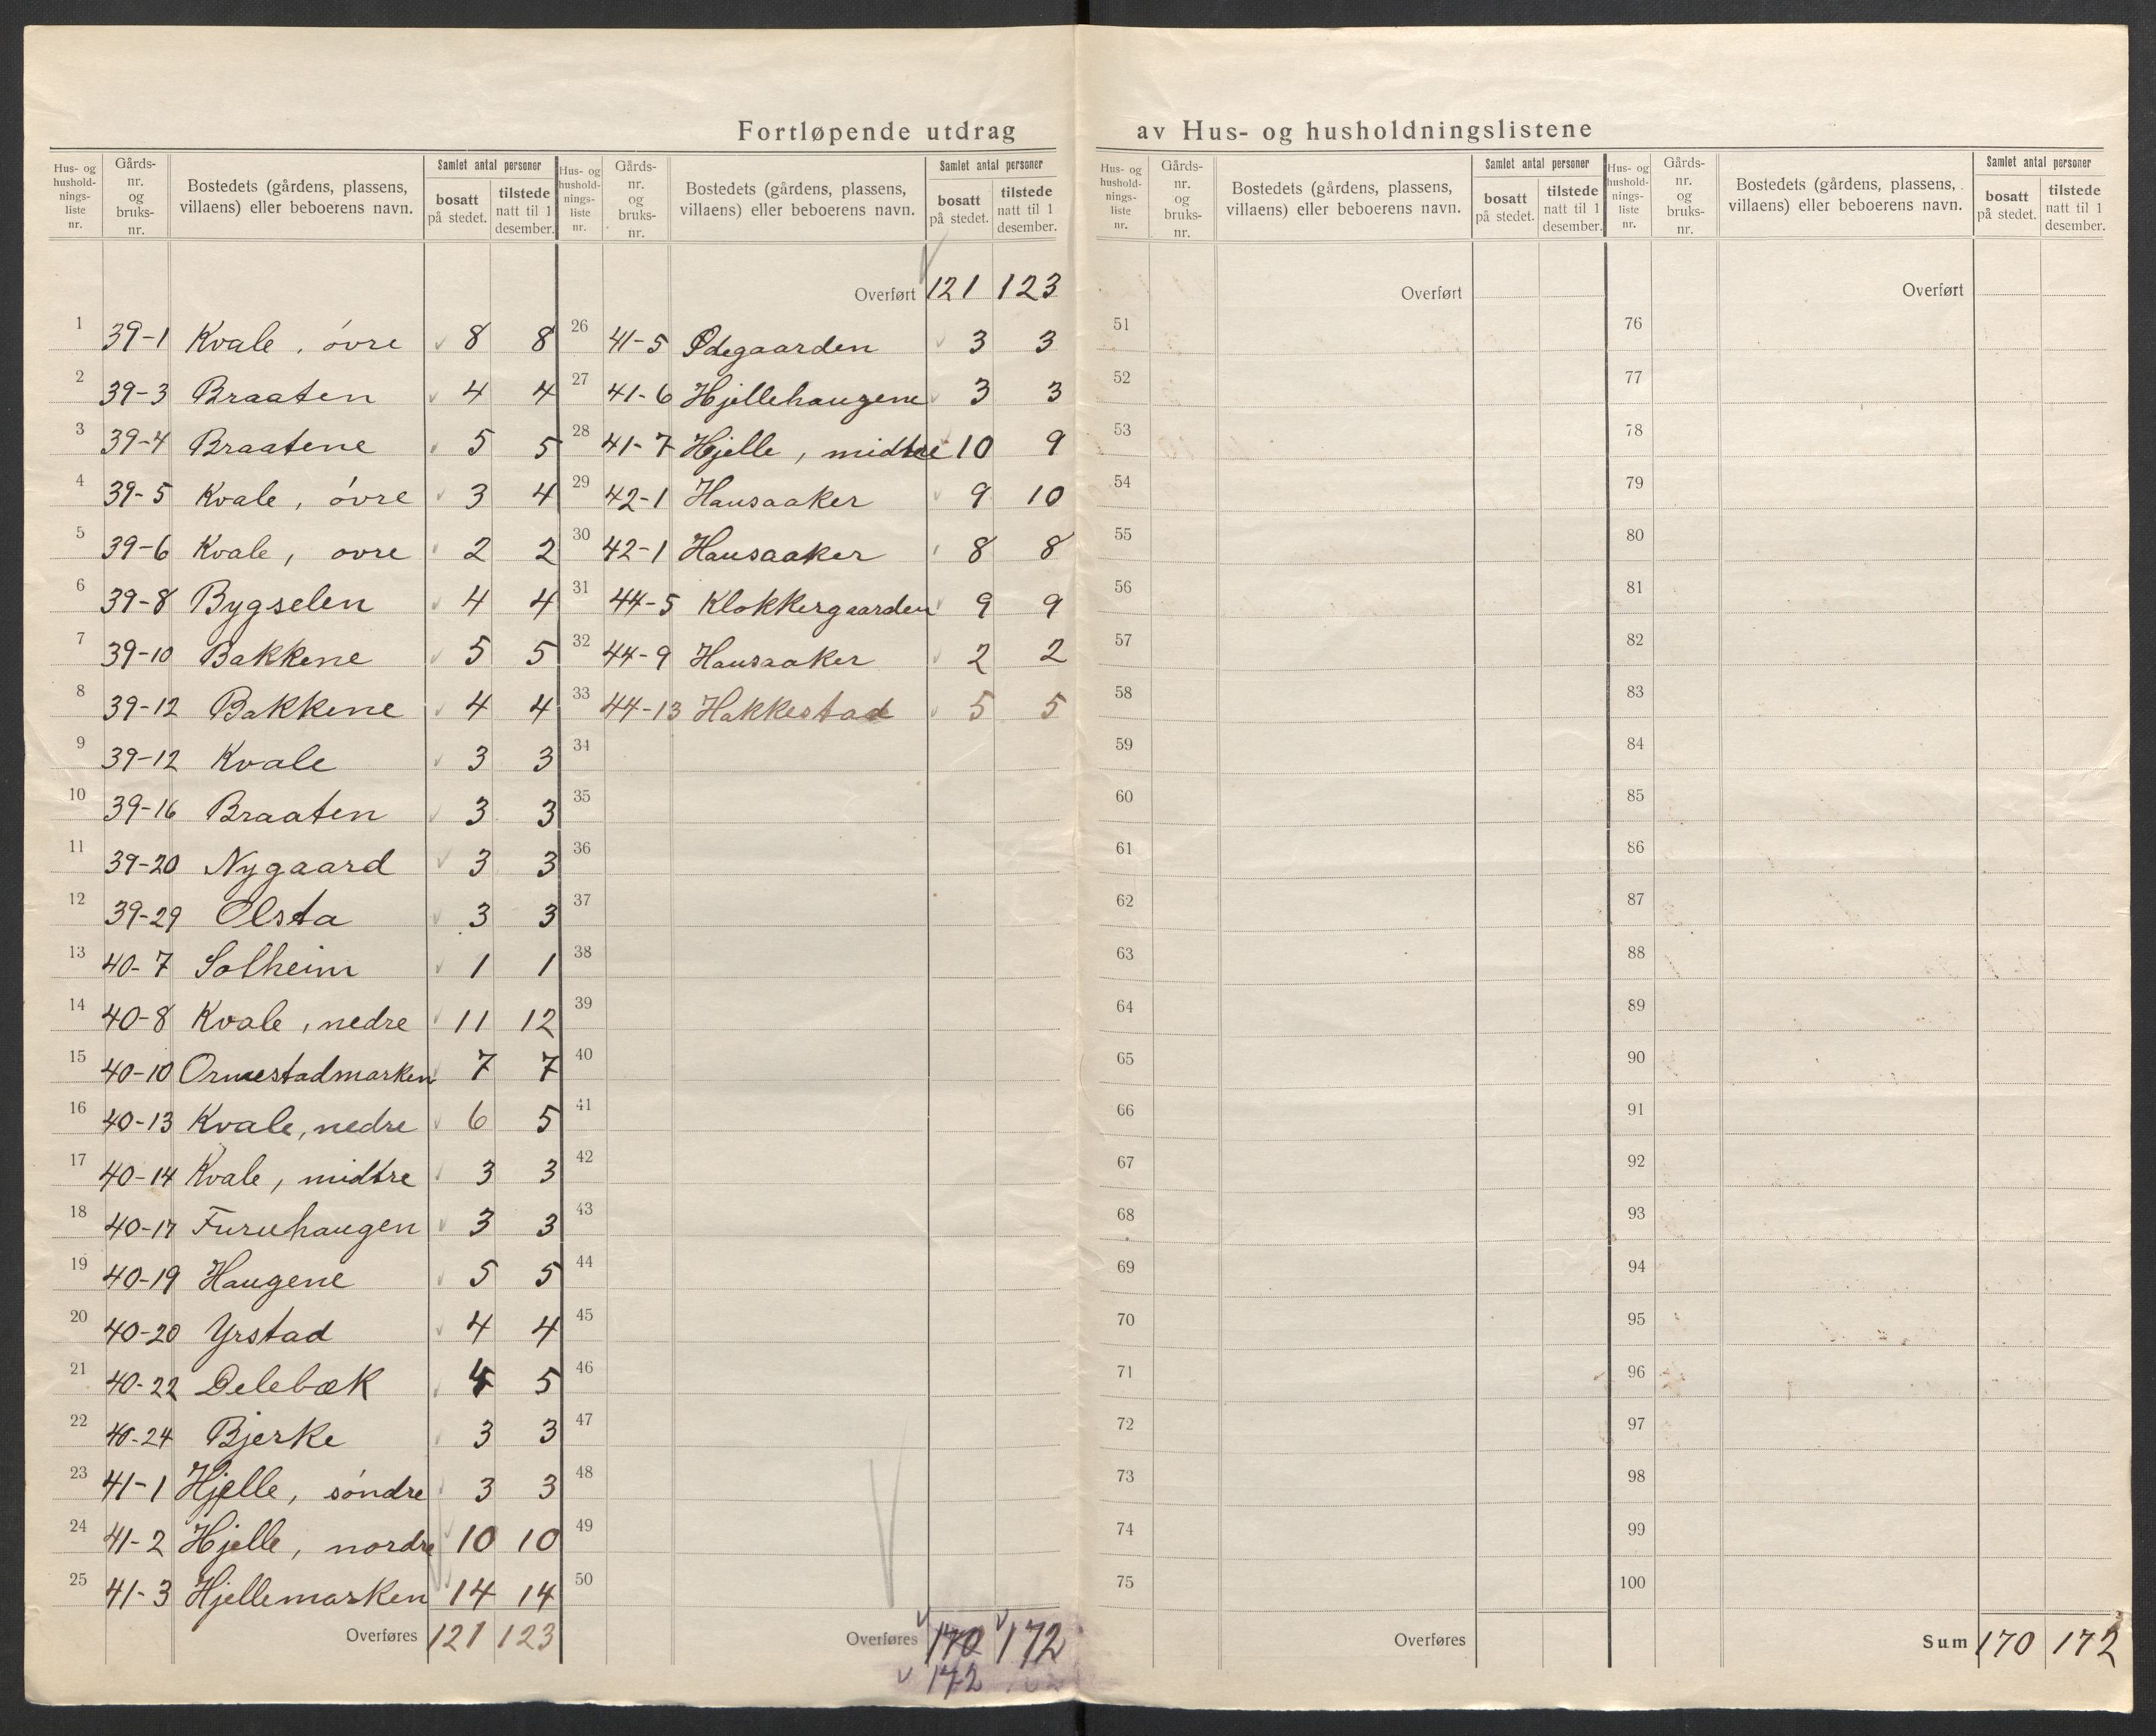 Fortløpende utdrag av Hus- og husholdningslistene
Hus- og hushold-nings-liste nr. Gårds-nr. og bruks-nr. Bostedets (gårdens, plassens, villaens) eller beboerens navn. Samlet antal personer bosatt på stedet. tilstede natt til 1 desember.
1 39-1 Kvale, óvre 8 8
2 39-3 Braaten 4 4
3 39-4 Braatene 5 5
4 39-5 Kvale, óvre 3 4
5 39-6 Kvale, ovre 2 2
6 39-8 Bygselen 4 4
7 39-10 Bakkene 5 5
8 39-12 Bakkene 4 4
9 39-12 Kvale 3 3
10 39-16 Braaten 3 3
11 39-20 Nygaard 3 3
12 39-29 Olsta 3 3
13 40-7 Solheim 1 1
14 40-8 Kvale, nedre 11 12
15 40-10 Ormestadmarken 7 7
16 40-13 Kvale, nedre 6 5
17 40-14 Kvale, midtre 3 3
18 40-17 Furuhaugen 3 3
19 40-19 Haugene 5 5
20 40-20 Yrstad 4 4
21 40-22 Delebæk 4 5
22 40-24 Bjerke 3 3
23 41-1 Hjelle, söndre 3 3
24 41-2 Hjelle, nordre 10 10
25 41-3 Hjellemarken 14 14
Overføres 121 123
Hus- og hushold-nings-liste nr. Gårds-nr. og bruks-nr. Bostedets (gårdens, plassens, villaens) eller beboerens navn. Samlet antal personer bosatt på stedet. tilstede natt til 1 desember.
Overført 121 123
26 41-5 Ødegaarden 3 3
27 41-6 Hjellehaugene 3 3
28 41-7 Hjelle, midtre 10 9
29 42-1 Hausaaker 9 10
30 42-1 Hausaaker 8 8
31 44-5 Klokkergaarden 9 9
32 44-9 Hausaaker 2 2
33 44-13 Hakkestad 5 5
34
35
36
37
38
39
40
41
42
43
44
45
46
47
48
49
50
Overføres 170 172
172
Hus- og hushold-nings-liste nr. Gårds-nr. og bruks-nr. Bostedets (gårdens, plassens, villaens) eller beboerens navn. Samlet antal personer bosatt på stedet. tilstede natt til 1 desember.
Overført
51
52
53
54
55
56
57
58
59
60
61
62
63
64
65
66
67
68
69
70
71
72
73
74
75
Overføres
Hus- og hushold-nings-liste nr. Gårds-nr. og bruks-nr. Bostedets (gårdens, plassens, villaens) eller beboerens navn. Samlet antal personer bosatt på stedet. tilstede natt til 1 desember.
Overført
76
77
78
79
80
81
82
83
84
85
86
87
88
89
90
91
92
93
94
95
96
97
98
99
100
Sum 170 172